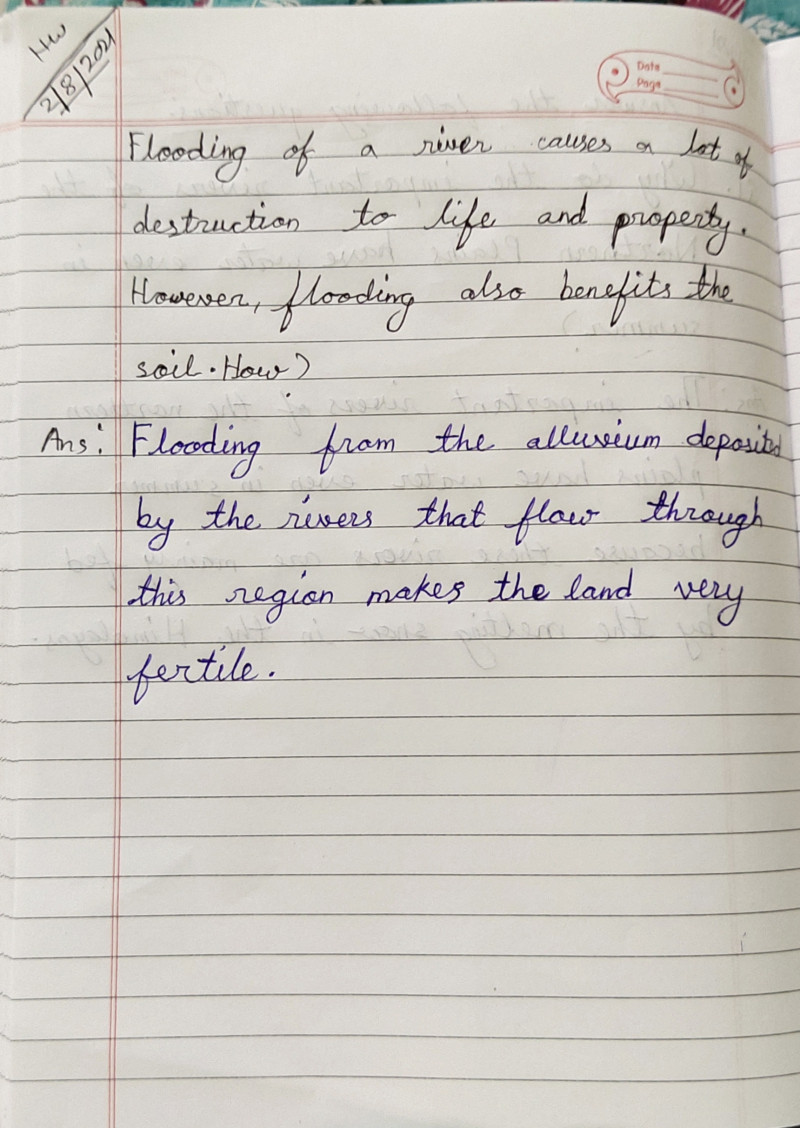 HW
2/8/2021
Date
Page
Flooding of a river causes a lot of
destruction to life and property.
However, flooding also benefits the
soil. How?
Ans: Flooding from the alluvium deposited
by the rivers that flow through
this region makes the land very
fertile.